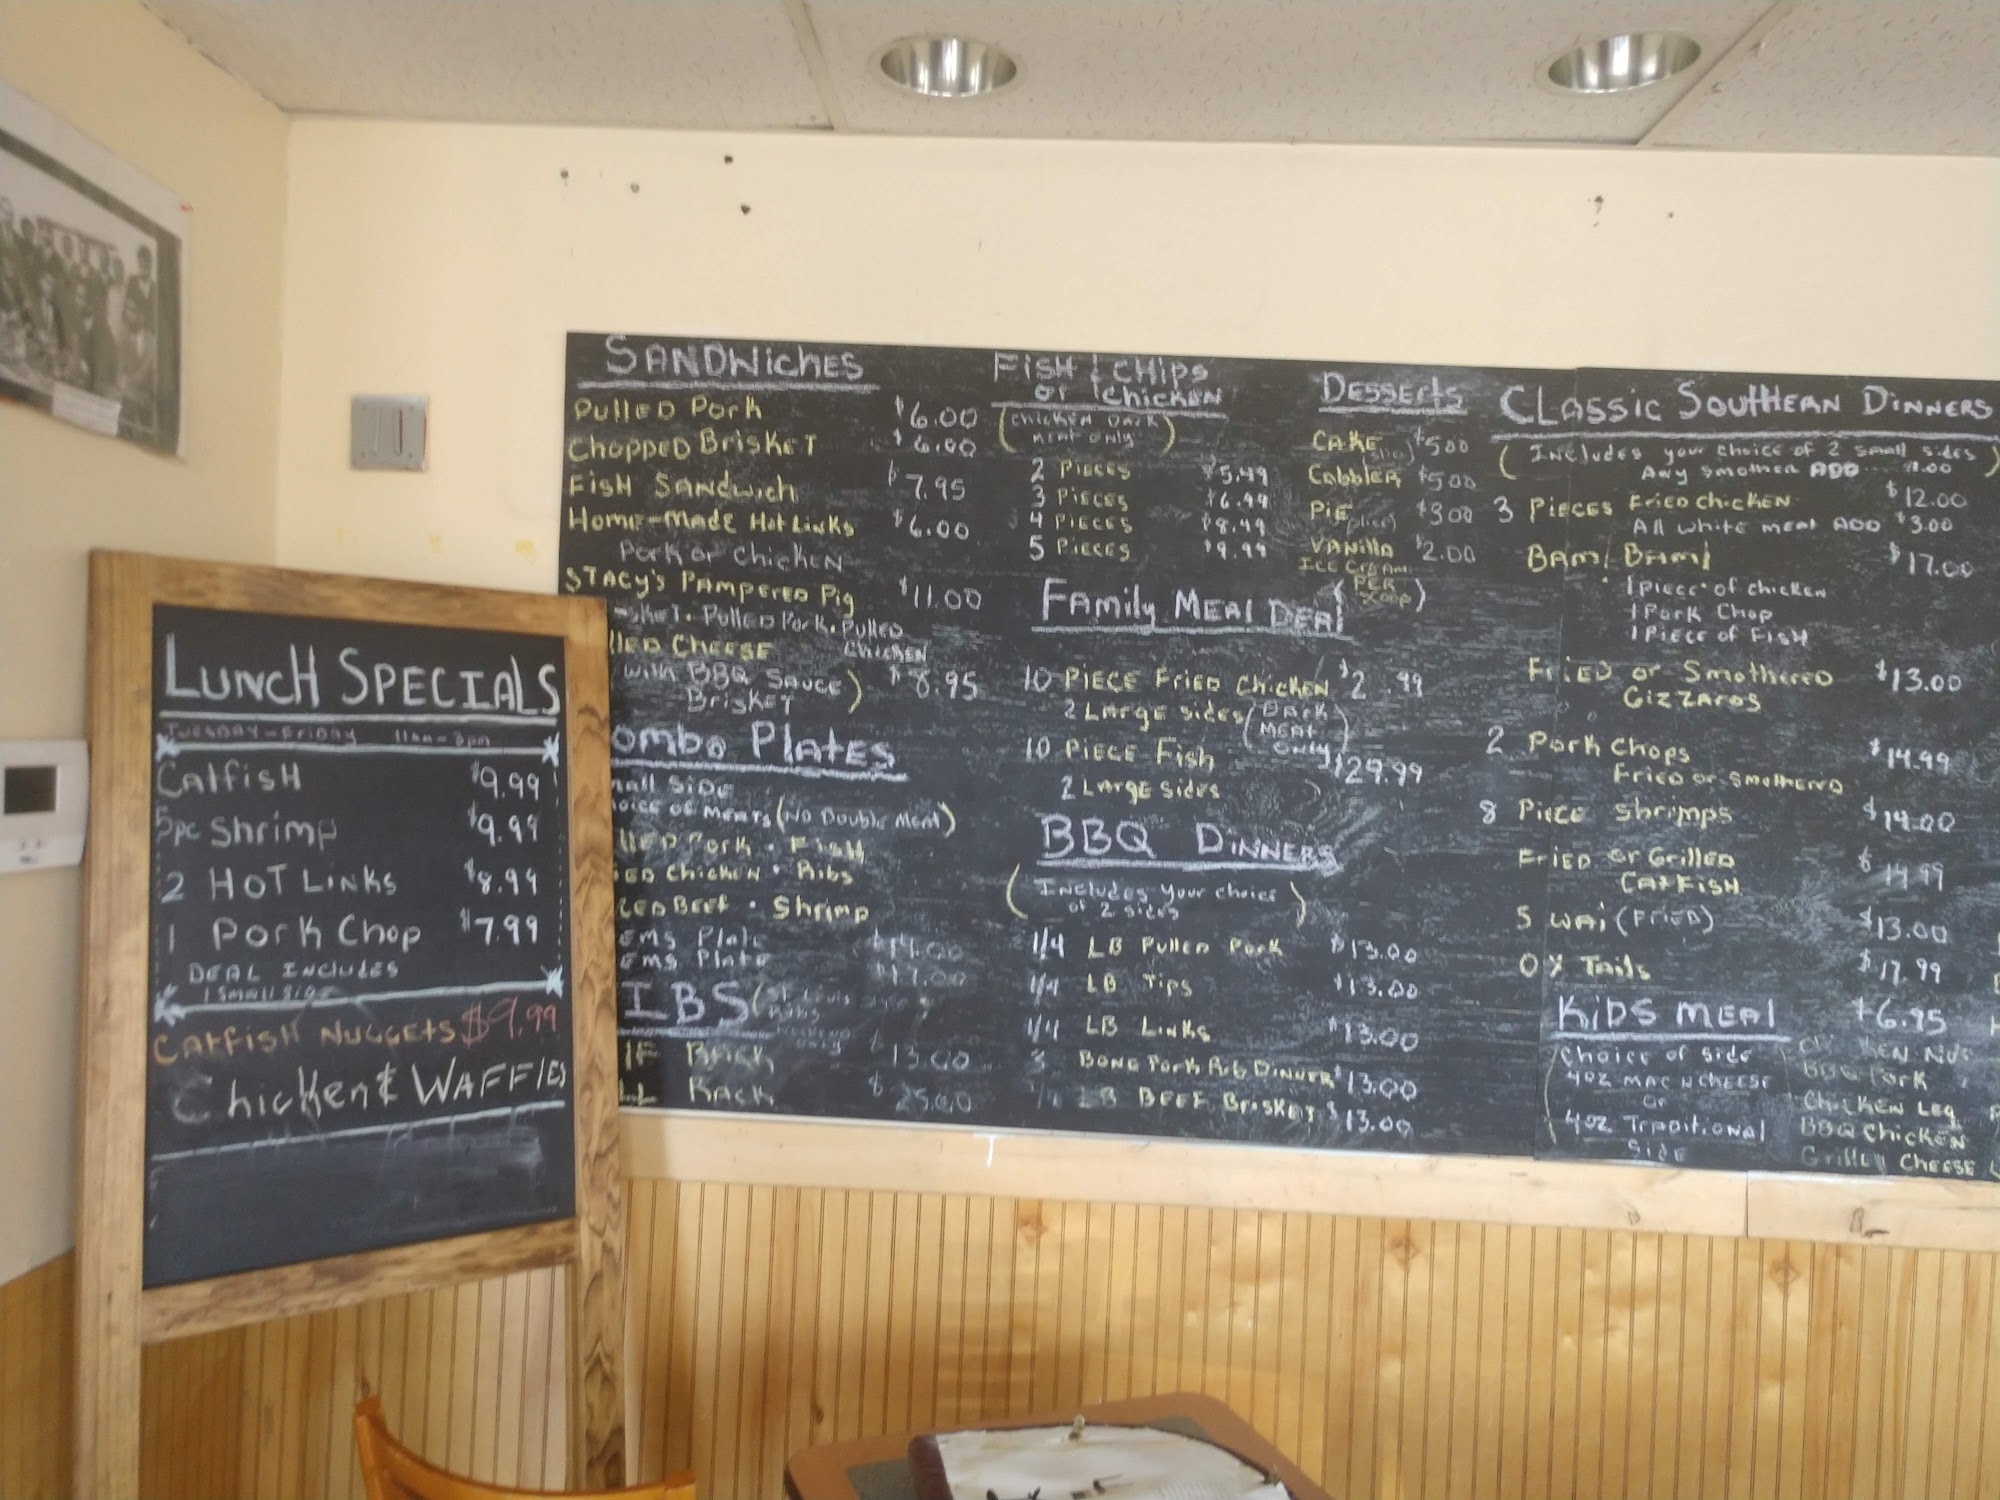 LUNCH SPECIALS
TUESDAY-FRIDAY 11am-3pm
CATFISH $9.99
5pc SHRIMP $9.99
2 HOT LINKS $8.99
1 PORK CHOP $7.99
DEAL INCLUDES
1 SMALL SIDE
CATFISH NUGGETS $9.99
CHICKEN & WAFFLES
SANDWICHES
PULLED PORK $6.00
CHOPPED BRISKET $6.00
FISH SANDWICH $7.95
HOME-MADE HOT LINKS $6.00
PORK OR CHICKEN
STACY'S PAMPERED PIG $11.00
SKET. PULLED PORK. PULLED
CHICKEN
LLED CHEESE
(WITH BBQ SAUCE) $8.95
BRISKET
OMBO PLATES
MALL SIDE
OICE OF MEATS (NO DOUBLE MEAT)
LLED PORK . FISH
IED CHICKEN . RIBS
CED BEEF . SHRIMP
EMS PLATE $14.00
EMS PLATE $17.00
IBS (ST. LOUIS
RIBS
ONLY
LF RACK $13.00
LL RACK $25.00
FISH & CHIPS
OR CHICKEN
(CHICKEN DARK
MEAT ONLY)
2 PIECES $5.49
3 PIECES $6.99
4 PIECES $8.49
5 PIECES $9.99
FAMILY MEAL DEAL
10 PIECE FRIED CHICKEN $2 .99
2 LARGE SIDES (DARK
MEAT
ONLY)
10 PIECE FISH $29.99
2 LARGE SIDES
BBQ DINNERS
(INCLUDES YOUR CHOICE
OF 2 SIDES)
1/4 LB PULLED PORK $13.00
1/4 LB TIPS $13.00
1/4 LB LINKS $13.00
3 BONE PORK RIB DINNER $13.00
1/4 LB BEEF BRISKET $13.00
DESSERTS
CAKE $5.00
COBBLER $5.00
PIE (SLICE) $3.00
VANILLA $2.00
ICE CREAM
(PER
SCOOP)
CLASSIC SOUTHERN DINNERS
(INCLUDES YOUR CHOICE OF 2 SMALL SIDES)
ANY SMOTHER ADD $1.00
3 PIECES FRIED CHICKEN $12.00
ALL WHITE MEAT ADD $3.00
BAM! BAM! $17.00
1 PIECE OF CHICKEN
1 PORK CHOP
1 PIECE OF FISH
FRIED OR SMOTHERED $13.00
GIZZARDS
2 PORK CHOPS $14.99
FRIED OR SMOTHERED
8 PIECE SHRIMPS $14.00
FRIED OR GRILLED $14.99
CATFISH
SWAI (FRIED) $13.00
OX TAILS $17.99
KIDS MEAL $6.95
CHOICE OF SIDE
4OZ MAC N CHEESE
OR
4OZ TRADITIONAL
SIDE
BBQ PORK
CHICKEN LEG
BBQ CHICKEN
GRILLED CHEESE